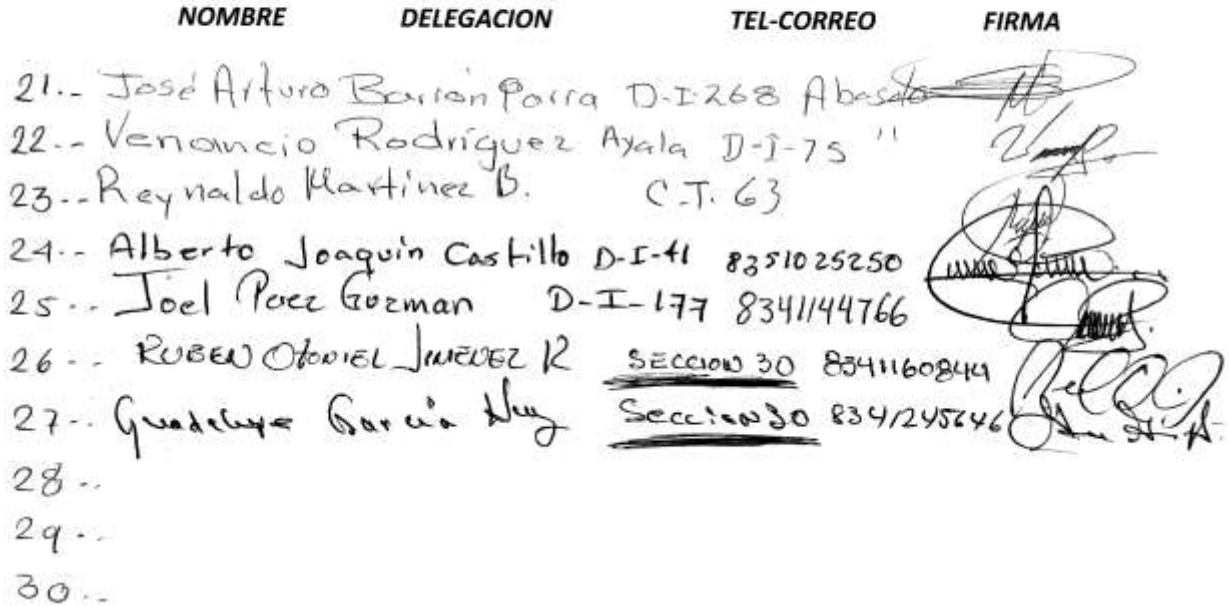 NOMBRE DELEGACION TEL-CORREO FIRMA
21.- José Arturo Barron Parra D-I-268 Abasolo
22.- Venancio Rodríguez Ayala D-I-75 "
23.- Reynaldo Martínez B. C.T. 63
24.- Alberto Joaquin Castillo D-I-41 8351025250
25.- Joel Perez Guzman D-I-177 8341144766
26.- RUBEN OTONIEL JIMENEZ R SECCION 30 8341160844
27.- Guadalupe García Seccion 30 8341245646
28.-
29.-
30.-